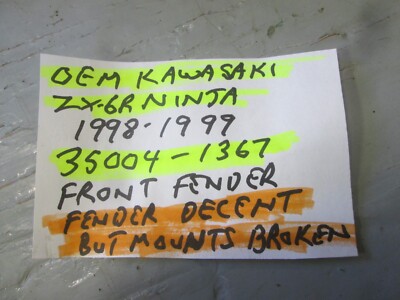 OEM KAWASAKI
ZX-6R NINJA
1998-1999
35004-1367
FRONT FENDER
FENDER DECENT
BUT MOUNTS BROKEN